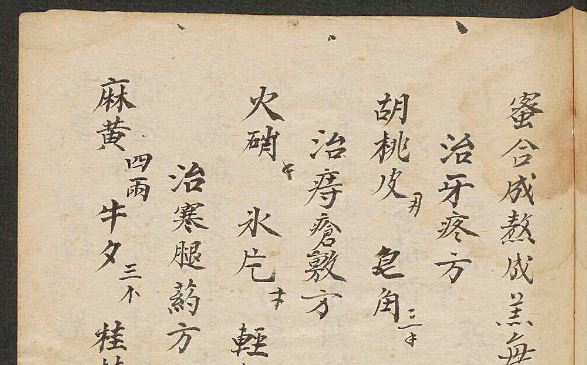 蜜合成熬成羔無
治牙疼方
胡桃皮 皂角
治痔瘡敷方
火硝 氷片 輕
治寒腿葯方
麻黄四兩 牛夕三个 桂